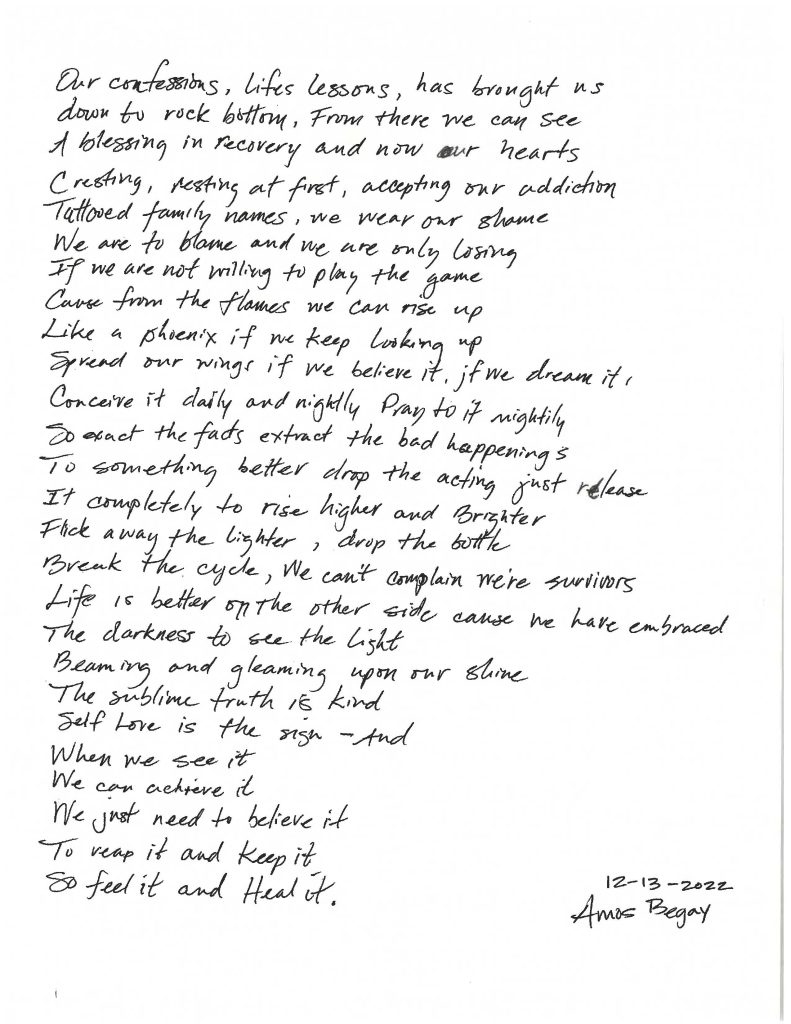 Our confessions, lifes lessons, has brought us
down to rock bottom, From there we can see
A blessing in recovery and now our hearts
Cresting, resting at first, accepting our addiction
Tattooed family names, we wear our shame
We are to blame and we are only losing
If we are not willing to play the game
Cause from the flames we can rise up
Like a phoenix if we keep looking up
Spread our wings if we believe it, if we dream it,
Conceive it daily and nightly Pray to it nightily
So exact the facts extract the bad happenings
To something better drop the acting just release
It completely to rise higher and Brighter
Flick away the lighter, drop the bottle
Break the cycle, We can't complain we're survivors
Life is better on the other side cause we have embraced
The darkness to see the light
Beaming and gleaming upon our shine
The sublime truth is kind
Self Love is the sign - And
When we see it
We can achieve it
We just need to believe it
To reap it and keep it
So feel it and Heal it.
12-13-2022
Amos Begay